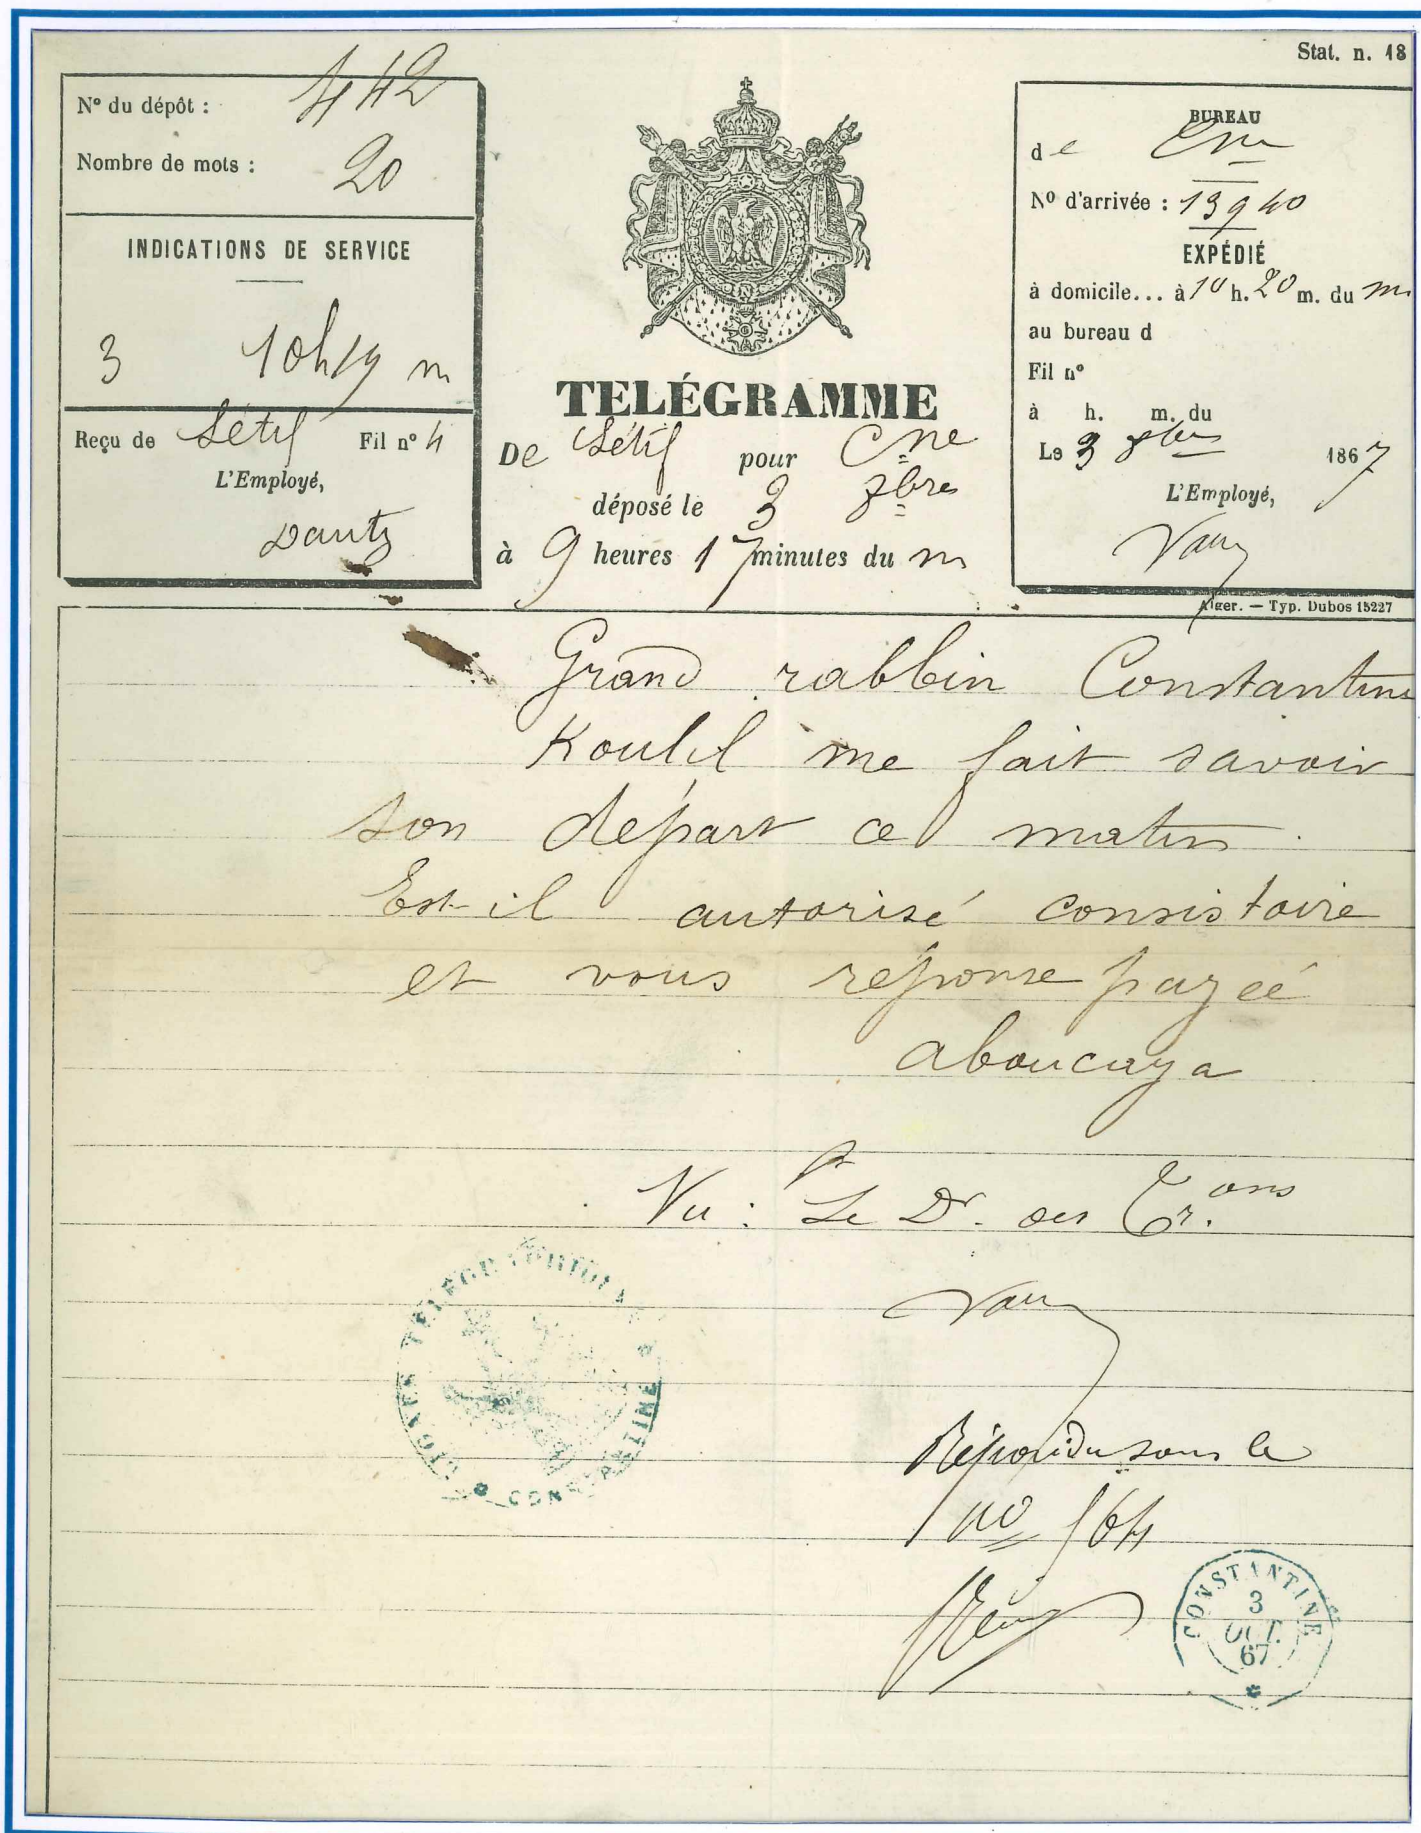 Stat. n. 18
N° du dépôt : 442
Nombre de mots : 20
INDICATIONS DE SERVICE
3 10h19 m
Reçu de Sétif Fil n° 4
L'Employé,
Dautz
TELÉGRAMME
De Sétif pour Cne
déposé le 3 8bres
à 9 heures 17 minutes du m
BUREAU
de Cne
N° d'arrivée : 13940
EXPÉDIÉ
à domicile... à 10 h. 20 m. du m
au bureau d
Fil n°
à h. m. du
Le 3 8bres 1867
L'Employé,
Alger. — Typ. Dubos 15227
Grand rabbin Constantine
Koulil me fait savoir
son départ ce matin.
Est-il autorisé consistoire
et vous réponse payée
aboucaya
Vu : Le Dr. des Tr.ons
LIGNES TÉLÉGRAPHIQUES
CONSTANTINE
Répondu sous le
no 564
CONSTANTINE
3
OCT.
67